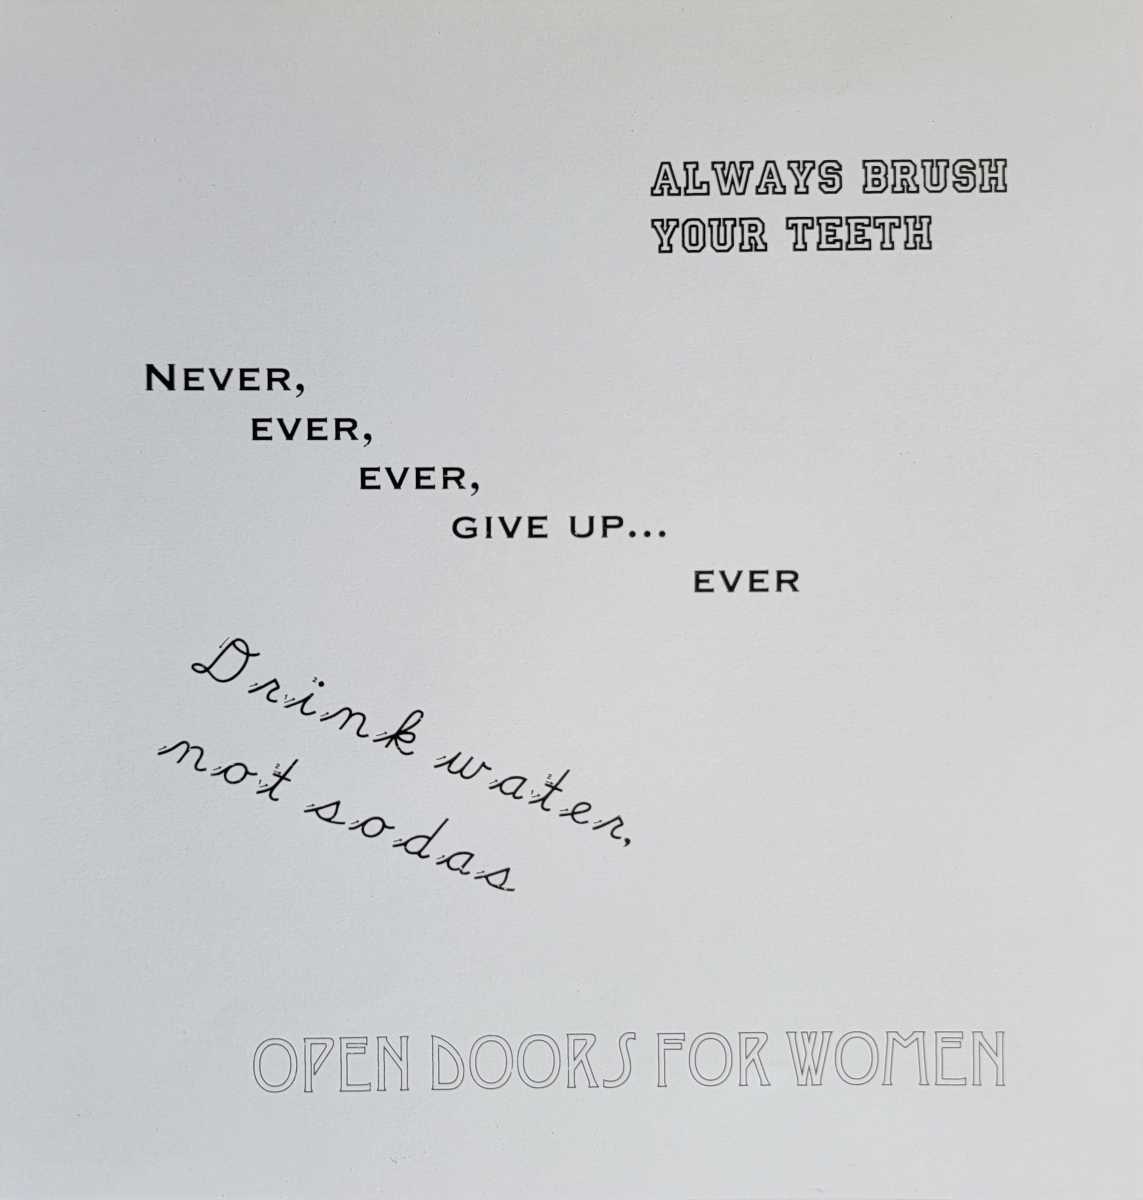 ALWAYS BRUSH
YOUR TEETH
NEVER,
EVER,
EVER,
GIVE UP...
EVER
Drink water,
not sodas
OPEN DOORS FOR WOMEN